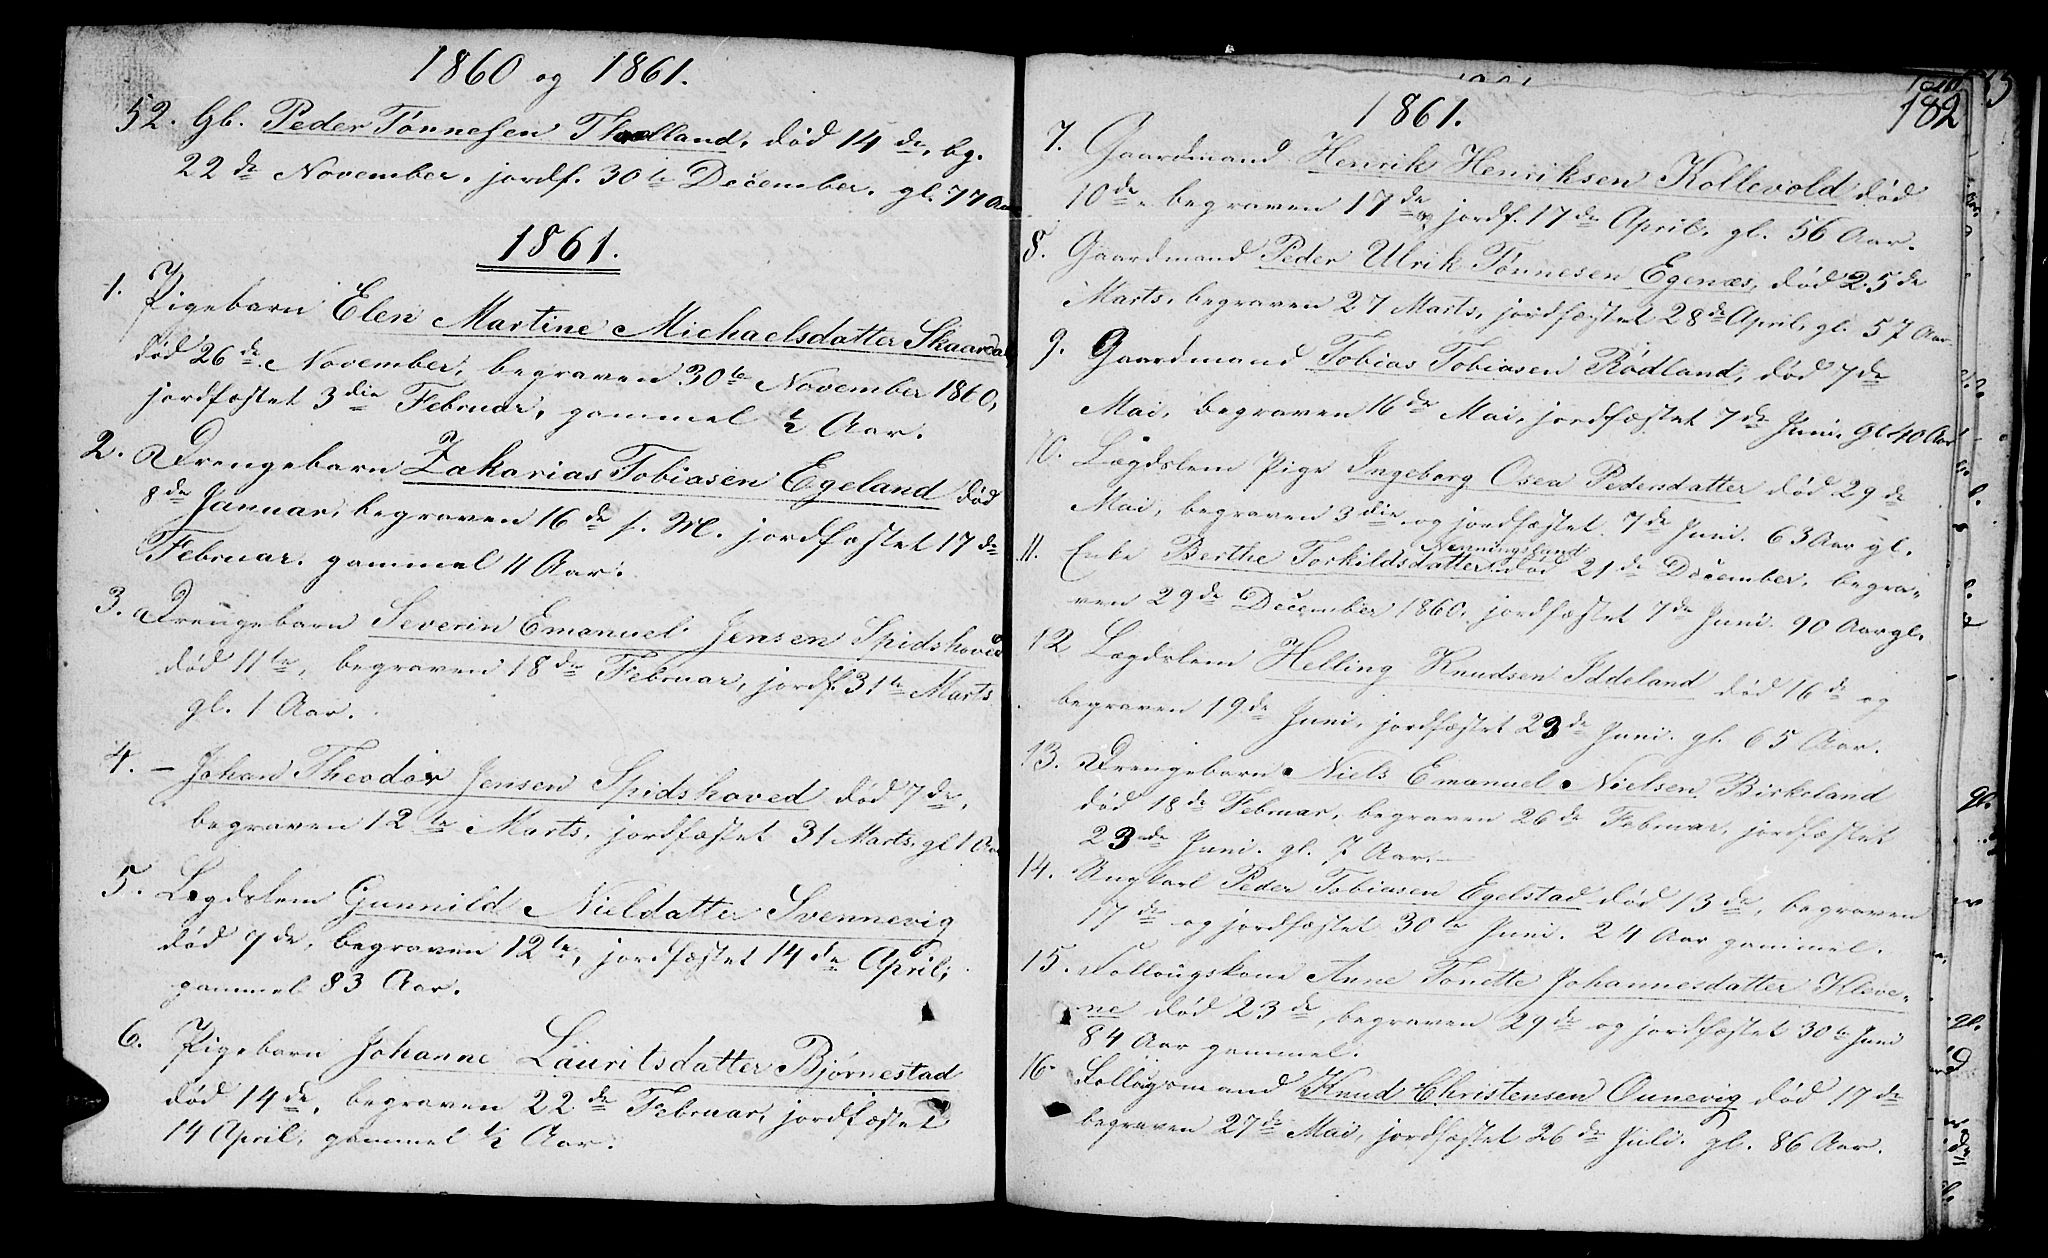 1860 og 1861.
52. Gb. Peder Tönnesen Thelland, död 14de, bg.
22de November, jordf. 30te December. gl. 77 Aar
1861.
1. Pigebarn Elen Martine Michaelsdatter Skaardal
död 26de November, begraven 30te November 1860,
jordfæstet 3die Februar, gammel ½ Aar.
2. Drengebarn Zakarias Tobiasen Egeland död
8de Januar, begraven 16de s. M. jordfæstet 17de
Februar. gammel 11 Aar.
3. Drengebarn Severin Emanuel Jensen Spidshoved
död 11te, begraven 18de Februar, jordf. 31te Marts
gl. 1 Aar.
4. – Johan Theodor Jensen Spidshoved död 7de,
begraven 12te Marts, jordfæstet 31 Marts. gl 1 Aar
5. Lægdslem Gunnild Nieldatter Svennevig
död 7de, begraven 12te, jordfæstet 14de April,
gammel 83 Aar.
6. Pigebarn Johanne Lauritsdatter Bjørnestad
död 14de, begraven 22de Februar, jordfæstet
14 April, gammel ½ Aar.
182
1861.
7. Gaardmand Henrik Henriksen Kollevold död
10de, begraven 17de og jordf. 17de April, gl. 56 Aar.
8. Gaardmand Peder Ulrik Tönnesen Egenæs, död 25de
Marts, begraven 27 Marts, jordfæstet 28de April, gl. 57 Aar.
9. Gaardmand Tobias Tobiasen Rödland, död 7de
Mai, begraven 16de Mai, jordfæstet 7de Juni, gl 40 Aar
10. Lægdslem Pige Ingeborg Osea Pedersdatter död 29de
Mai, begraven 3die og jordfæstet 7de Juni. 63 Aar gl.
11. Enke Berthe Torkildsdatter Nenningsland död 21de December, begra-
ven 29de December 1860, jordfæstet 7de Juni. 90 Aar gl.
12 Lægdslem Helling Knudsen Iddeland död 16de og
begraven 19de Juni, jordfæstet 23de Juni. gl. 65 Aar.
13. Drengebarn Niels Emanuel Nielsen Birkeland
död 18de Februar, begraven 26de Februar, jordfæstet
23de Juni. gl. 7 Aar.
14. Ungkarl Peder Tobiasen Egelstad död 13de, begraven
17de og jordfæstet 30te Juni. 24 Aar gammel.
15. Follougskone Anne Tonette Johannesdatter Kleve-
ne död 23de, begraven 29de og jordfæstet 30te Juni
84 Aar gammel.
16. Follougsmand Knud Christensen Ounevig död 17de
begraven 27de Mai, jordfæstet 26de Juli. gl. 86 Aar.